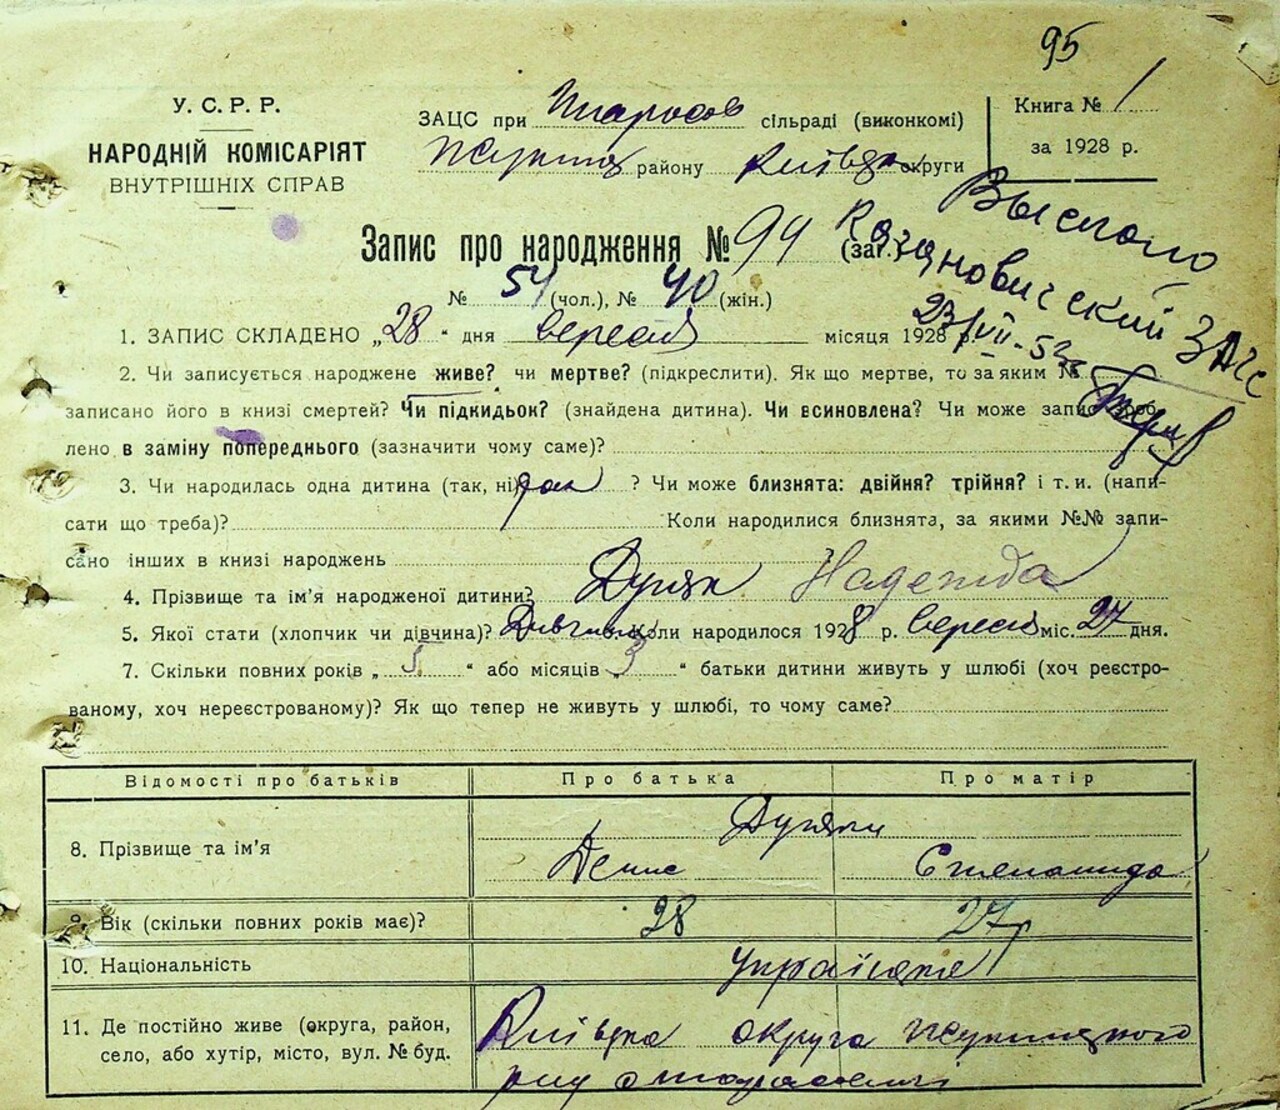 95
У. С. Р. Р.
НАРОДНІЙ КОМІСАРІЯТ
ВНУТРІШНІХ СПРАВ
ЗАЦС при сільраді (виконкомі)
району округи
Книга № 1
за 1928 р.
Запис про народження № 94 (заг.)
№ 54 (чол.), № 40 (жін.)
Выслано
Казановичский ЗАГС
23/VII-53г
1. ЗАПИС СКЛАДЕНО „28“ дня вересня місяця 1928 р.
2. Чи записується народжене живе? чи мертве? (підкреслити). Як що мертве, то за яким №
записано його в книзі смертей? Чи підкидьок? (знайдена дитина). Чи всиновлена? Чи може запис зроб-
лено в заміну попереднього (зазначити чому саме)?
3. Чи народилась одна дитина (так, ні) ? Чи може близнята: двійня? трійня? і т. и. (напи-
сати що треба)? Коли народилися близнята, за якими №№ запи-
сано інших в книзі народжень
4. Прізвище та ім'я народженої дитини? Надежда
5. Якої стати (хлопчик чи дівчина)? Дівчина Коли народилося 1928 р. вересня міс. 27 дня.
7. Скільки повних років „5“ або місяців „3“ батьки дитини живуть у шлюбі (хоч реєстро-
ваному, хоч нереєстрованому)? Як що тепер не живуть у шлюбі, то чому саме?
Відомості про батьків Про батька Про матір
8. Прізвище та ім'я
Денис Степанида
9. Вік (скільки повних років має)? 28 27
10. Національність
11. Де постійно живе (округа, район,
село, або хутір, місто, вул. № буд.
округа